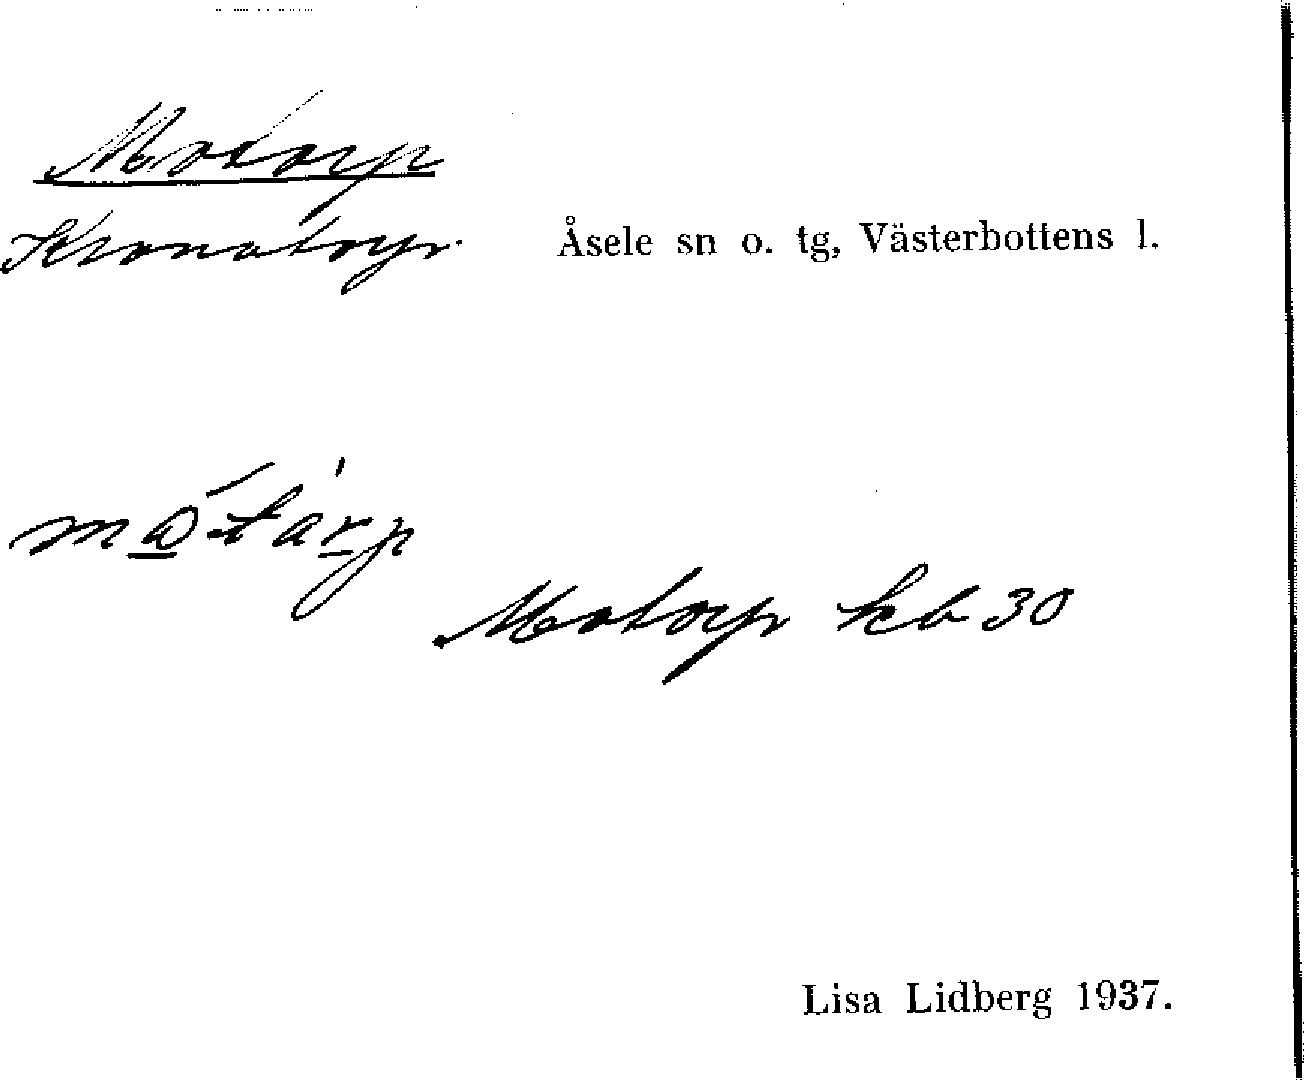 Motorp
Kronotorp. Åsele sn o. tg, Västerbottens l.
Motorp kb 30
Lisa Lidberg 1937.